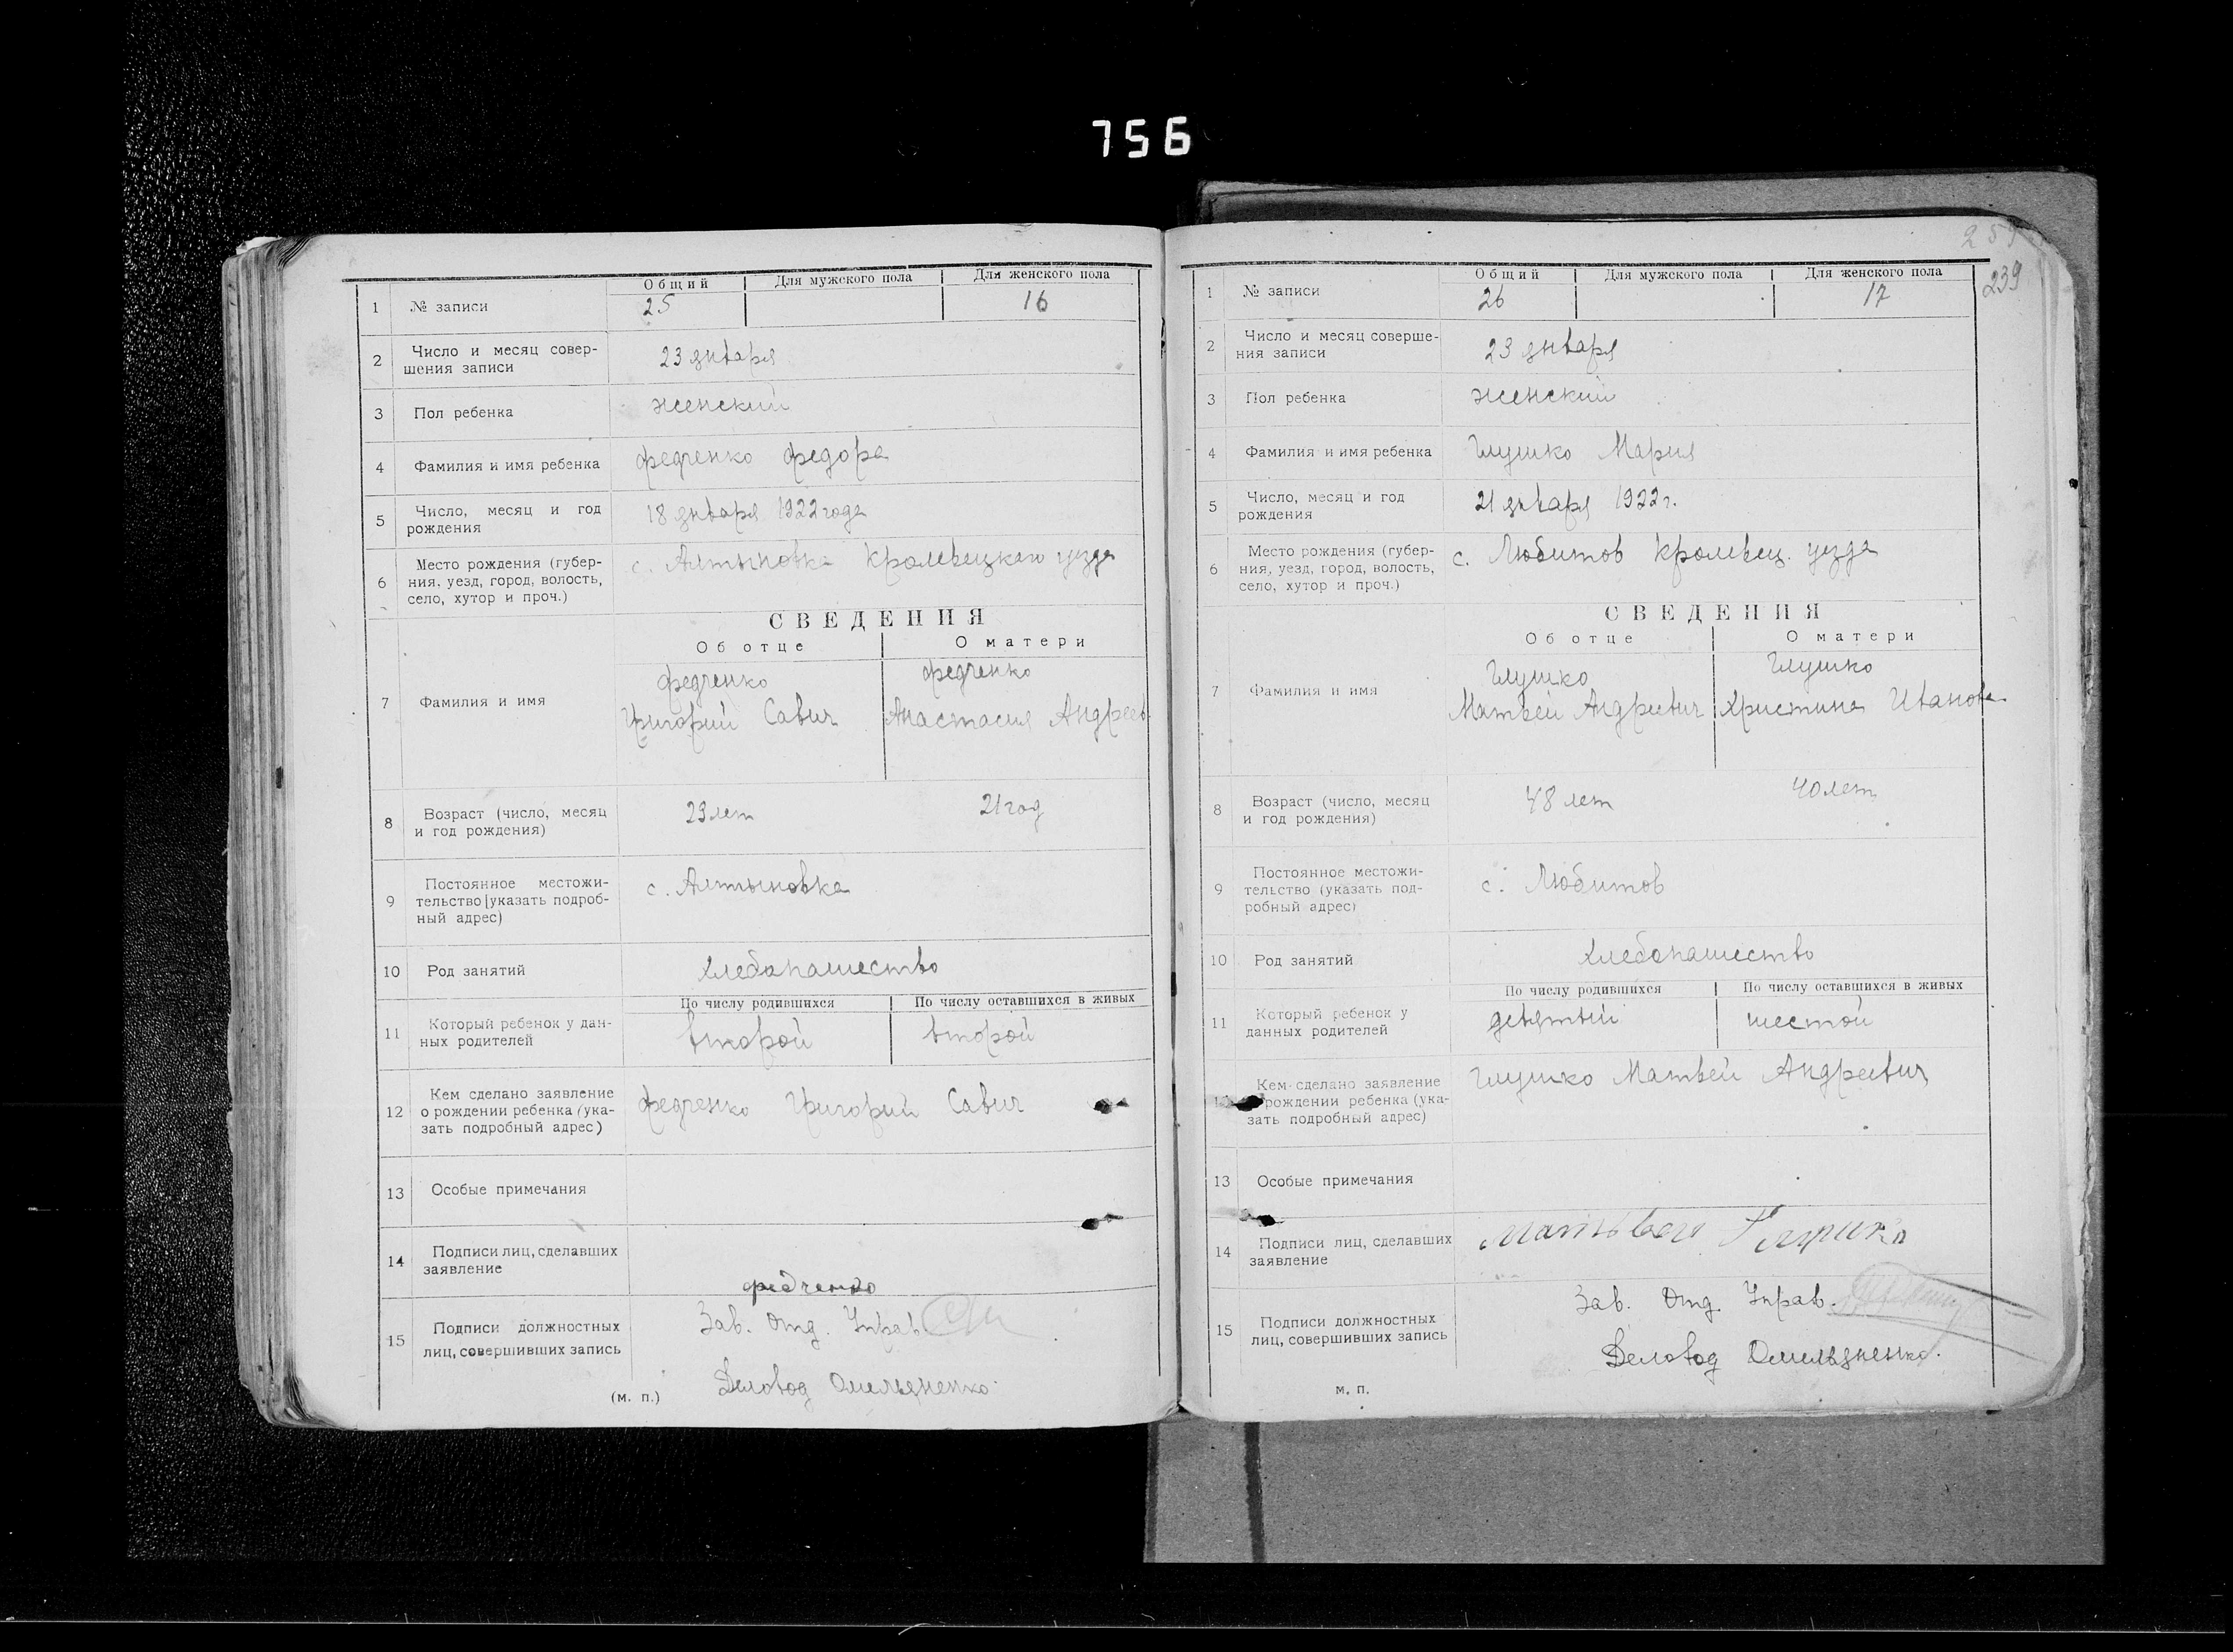 756
Общий Для мужского пола Для женского пола
1 № записи 25 16
2 Число и месяц совер-
шения записи 23 января
3 Пол ребенка женский
4 Фамилия и имя ребенка Федченко Федора
5 Число, месяц и год
рождения 18 января 1922 года
6 Место рождения (губер-
ния, уезд, город, волость,
село, хутор и проч.) с. Алтыновка Кролевецкаго уезда
СВЕДЕНИЯ
Об отце О матери
7 Фамилия и имя
Федченко Федченко
Григорий Савич Анастасия Андреев.
8 Возраст (число, месяц
и год рождения) 29 лет 21 год
9 Постоянное местожи-
тельство (указать подроб-
ный адрес) с. Алтыновка
10 Род занятий хлебопашество
По числу родившихся По числу оставшихся в живых
11 Который ребенок у дан-
ных родителей второй второй
12 Кем сделано заявление
о рождении ребенка (ука-
зать подробный адрес) Федченко Григорий Савич
13 Особые примечания
14 Подписи лиц, сделавших
заявление
Федченко
15 Подписи должностных
лиц, совершивших запись
Зав. Отд. Управ.
(м. п.) Деловод Омельяненко
259
239
Общий Для мужского пола Для женского пола
1 № записи 26 17
2 Число и месяц соверше-
ния записи 23 января
3 Пол ребенка женский
4 Фамилия и имя ребенка Глушко Мария
5 Число, месяц и год
рождения 21 января 1922 г.
6 Место рождения (губер-
ния, уезд, город, волость,
село, хутор и проч.) с. Любитов Кролевец. уезда
СВЕДЕНИЯ
Об отце О матери
7 Фамилия и имя
Глушко Глушко
Матвей Андреевич Христина Иванова
8 Возраст (число, месяц
и год рождения) 48 лет 40 лет
9 Постоянное местожи-
тельство (указать под-
робный адрес) с. Любитов
10 Род занятий хлебопашество
По числу родившихся По числу оставшихся в живых
11 Который ребенок у
данных родителей девятый шестой
Кем сделано заявление
рождении ребенка (ука-
зать подробный адрес) Глушко Матвей Андреевич
13 Особые примечания
14 Подписи лиц, сделавших
заявление Матвей Глушко
15 Подписи должностных
лиц, совершивших запись
Зав. Отд. Управ.
Деловод Омельяненко.
м. п.